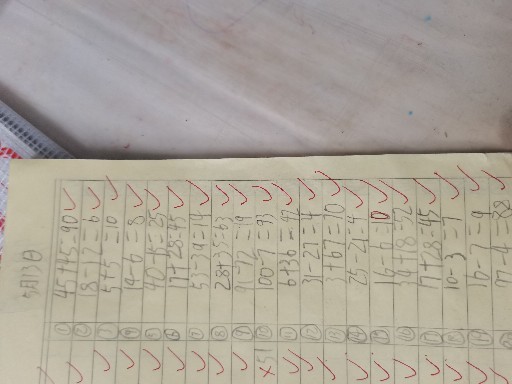 5月13日
① 45+45=90
② 18-12=6
③ 5+5=10
④ 14-6=8
⑤ 40-15=25
⑥ 17+28=45
⑦ 53-39=14
⑧ 28+35=63
⑨ 91-72=19
⑩ 100-7=93
⑪ 6+36=42
⑫ 31-27=4
⑬ 3+67=70
⑭ 25-21=4
⑮ 16-6=10
⑯ 34+18=52
⑰ 17+28=45
⑱ 10-3=7
⑲ 16-7=9
92-4=88
×5